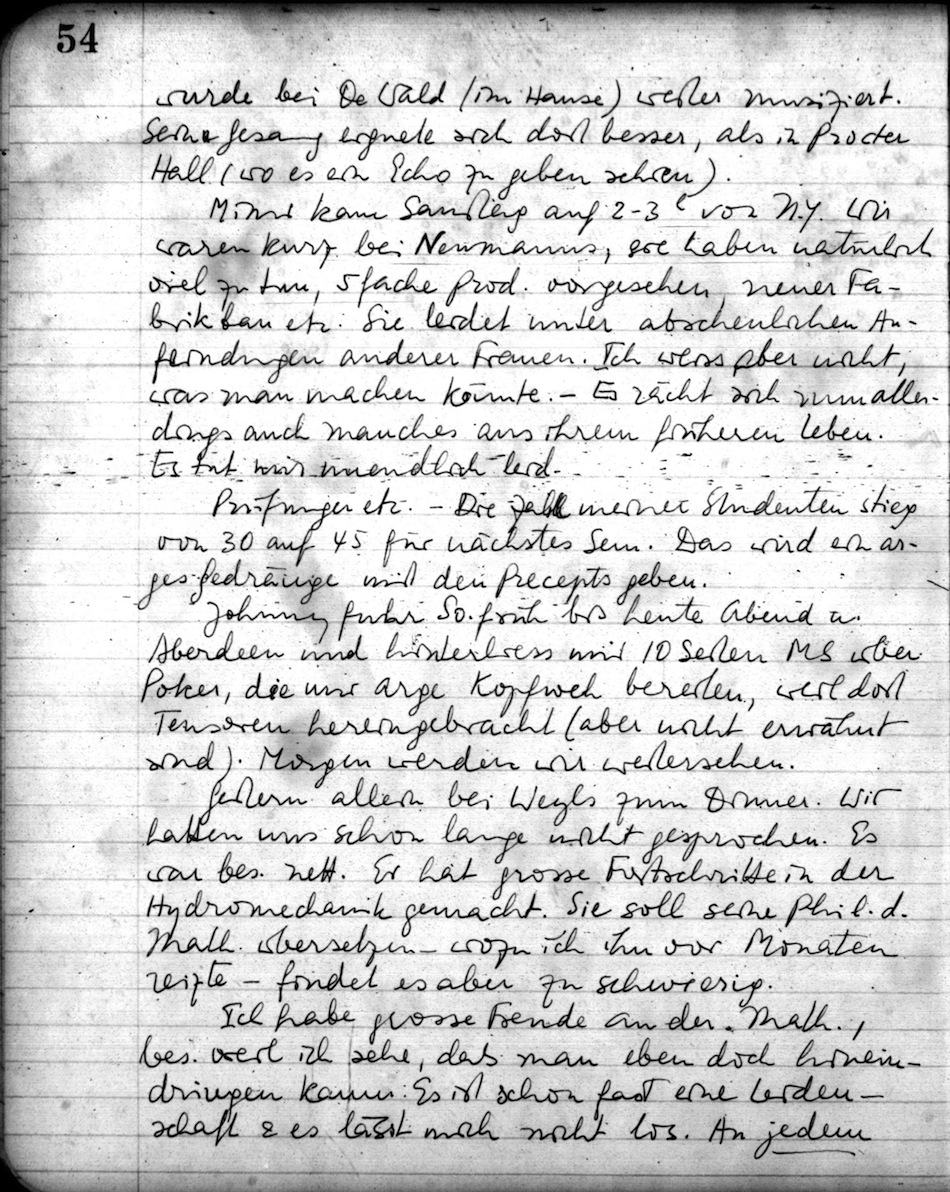 54
wurde bei De Wald (im Hause) weiter musiziert.
Seine Gesang eignete sich dort besser, als in Procter
Hall (wo es ein Echo zu geben schien).
Mimi kam Samstag auf 2-3 von N.Y. Wir
waren kurz bei Neumanns, sie haben natürlich
viel zu tun, 5fache Prod. vorgesehen, neuer Fa-
brikbau etc. Sie leidet unter abscheulichen An-
feindungen anderer Frauen. Ich weiss aber nicht,
was man machen könnte. – Es rächt sich nun aller-
dings auch manches aus ihrem früheren Leben.
Es tut mir unendlich leid.
Prüfungen etc. – Die Zahl meiner Studenten stieg
von 30 auf 45 für nächstes Sem. Das wird ein ar-
ges Gedränge mit den Precepts geben.
Johnny fuhr So. früh bis heute Abend n.
Aberdeen und hinterliess mir 10 Seiten MS über
Poker, die mir arge Kopfweh bereiten, weil dort
Tensoren hereingebracht (aber nicht erwähnt
sind). Morgen werden wir weitersehen.
Gestern allein bei Weyls zum Dinner. Wir
hatten uns schon lange nicht gesprochen. Es
war bes. nett. Er hat grosse Fortschritte in der
Hydromechanik gemacht. Sie soll seine Phil. d.
Math. übersetzen – wozu ich ihn vor Monaten
reizte – findet es aber zu schwierig.
Ich habe grosse Freude an der Math.,
bes. weil ich sehe, dass man eben doch hinein-
dringen kann. Es ist schon fast eine Leiden-
schaft & es lässt mich nicht los. An jedem